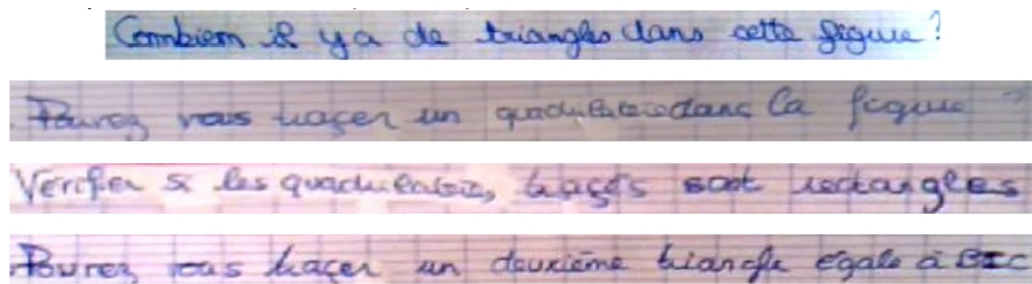 Combien il y a de triangles dans cette figure ?
Pouvez vous traçer un quadrilatère dans la figure ?
Vérifier si les quadrilatère, traçés sont rectangles
Pouvez vous traçer un deuxième triangle égale à BIC